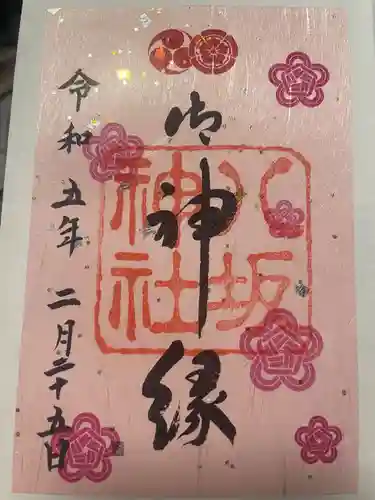 御神縁
八坂神社
令和五年二月二十五日